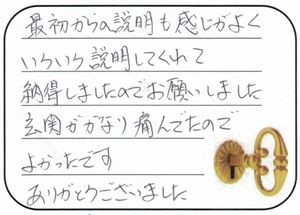 最初からの説明も感じがよく
いろいろ説明してくれて
納得しましたのでお願いしました
玄関がかなり痛んでたので
よかったです
ありがとうございました